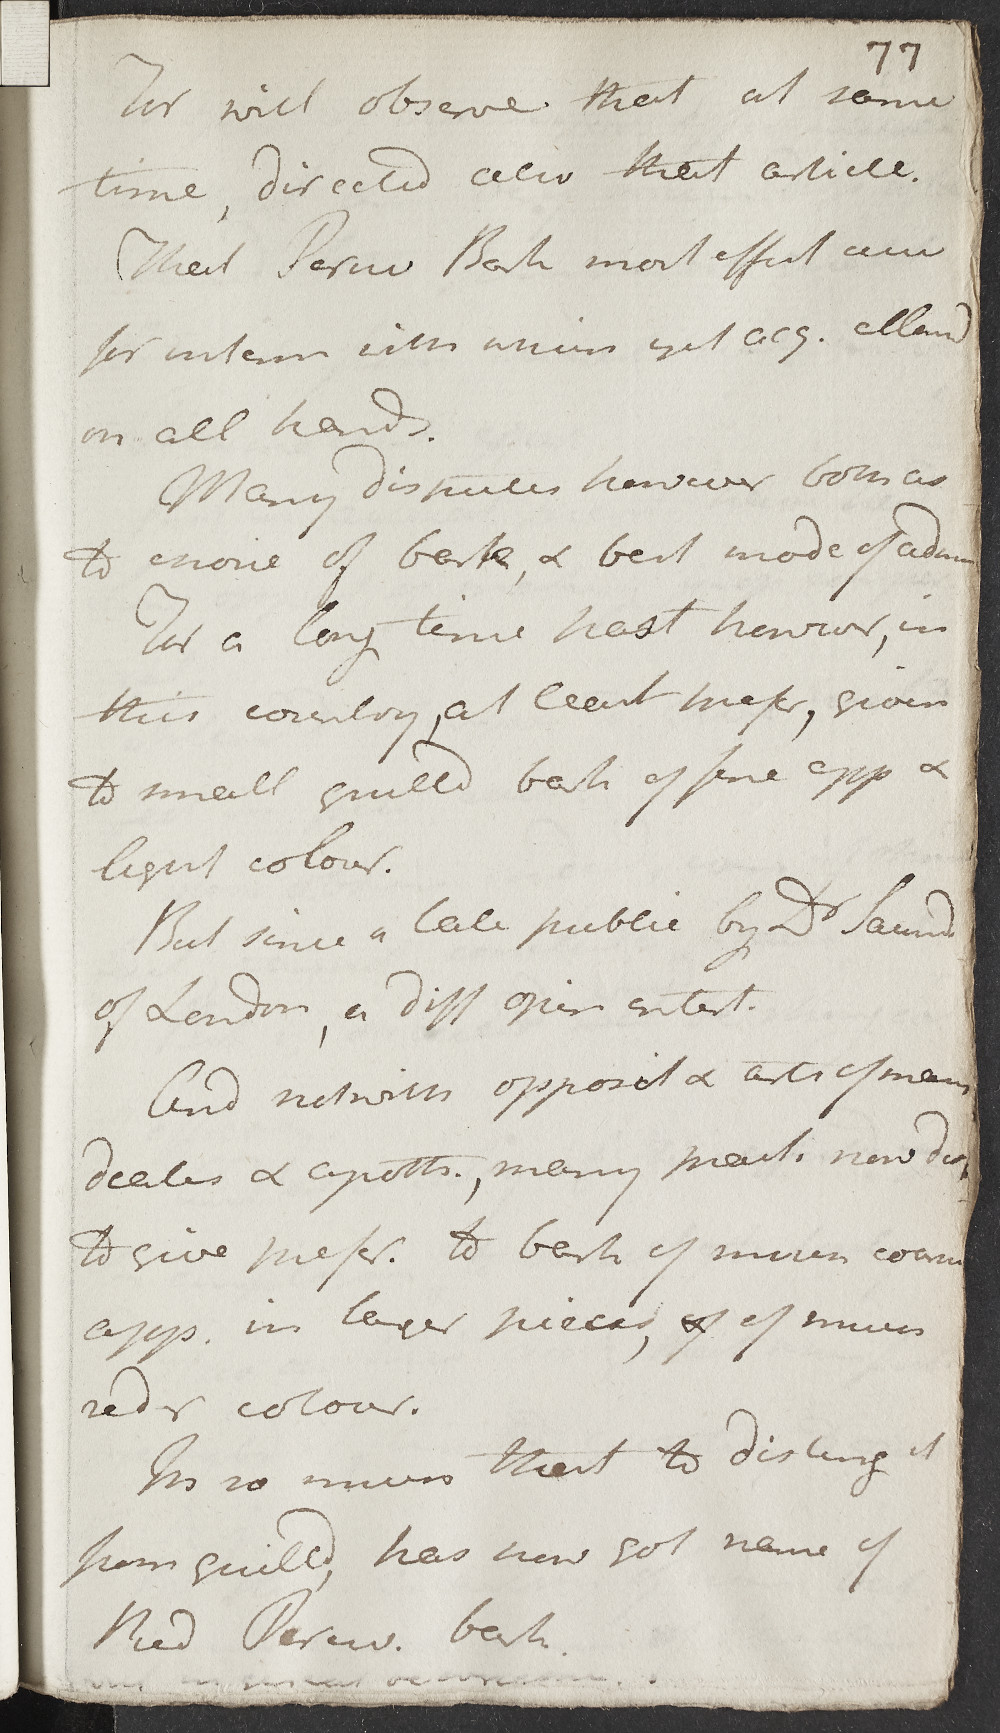 77
For will observe that at same
time, directed also that article.
That Peruv Bark most effect
for interm with which yet acq. allowd
on all hands.
Many disputes however both as
to choice of bark, & best mode of admin
For a long time past however, in
this country, at least prefer, given
to small quilld bark of fine app &
light colour.
But since a late public by Dr Saund
of London, a diff opin entert.
And notwith opposit & arts of many
deales & apoth., many pract. now dis
to give prefer. to bark of much coars
app. in larger pieces, & of much
redr colour.
In so much that to disting it
from quilld, has now got name of
Red Peruv. bark.